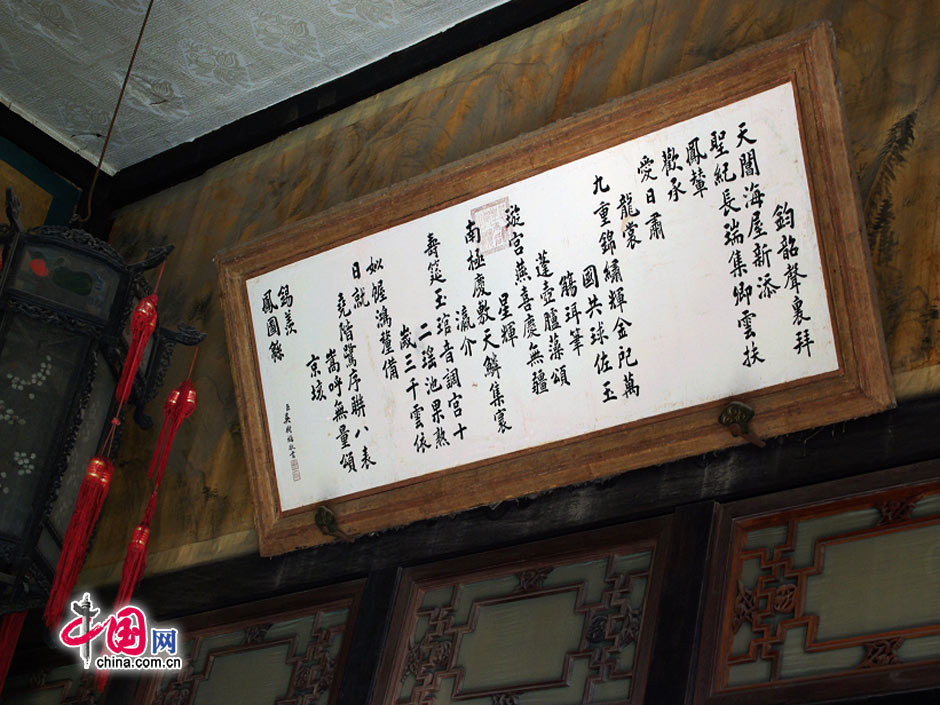 鈞韶聲裏拜
天閶海屋新添
聖紀長瑞集卿雲扶
鳳輦
歡承
愛日肅
龍裳
九重錦繡輝金戺萬
國共球佐玉
鷁珥筆
蓬壺臚藻頌
璇宮燕喜慶無疆
星輝
南極慶敷天鱗集寰
瀛介
壽筵玉琯音調宮十
二瑤池果熟
歲三千雲依
姒幄鴻釐備
日就
堯階鷺序聯八表
嵩呼無量頌
京垓
錫羨
鳳圖緜
臣吳樹梅敬書
中国网
china.com.cn